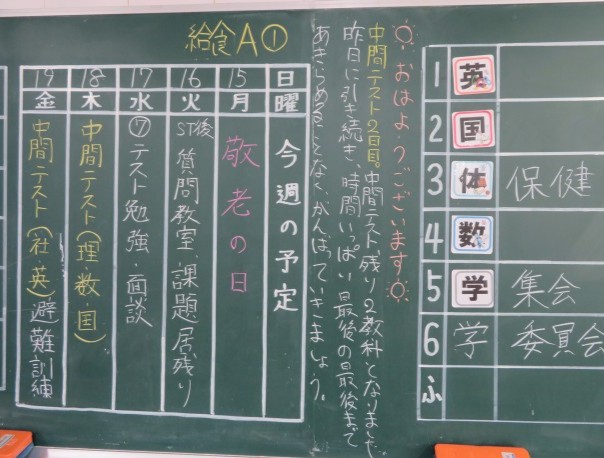 給食A①
1 英
2 国
3 体 保健
4 数
5 学 集会
6 学 委員会
ふ
おはようございます
中間テスト2日目。中間テスト、残り2教科となりました。
昨日に引き続き、時間いっぱい最後の最後まで
あきらめることなく、がんばっていきましょう。
日 曜 今週の予定
15 月 敬老の日
16 火 ST後 質問教室、課題居残り
17 水 ⑦テスト勉強・面談
18 木 中間テスト(理・数・国)
19 金 中間テスト(社・英)避難訓練